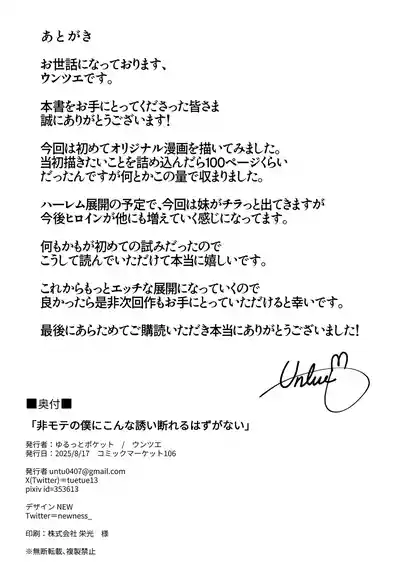 あとがき
お世話になっております、
ウンツエです。
本書をお手にとってくださった皆さま
誠にありがとうございます！
今回は初めてオリジナル漫画を描いてみました。
当初描きたいことを詰め込んだら100ページくらい
だったんですが何とかこの量で収まりました。
ハーレム展開の予定で、今回は妹がチラっと出てきますが
今後ヒロインが他にも増えていく感じになってます。
何もかもが初めての試みだったので
こうして読んでいただけて本当に嬉しいです。
これからもっとエッチな展開になっていくので
良かったら是非次回作もお手にとっていただけると幸いです。
最後にあらためてご購読いただき本当にありがとうございました！
Untue
■奥付■
「非モテの僕にこんな誘い断れるはずがない」
発行者：ゆるっとポケット　/　ウンツエ
発行日：2025/8/17　コミックマーケット106
発行者 untu0407@gmail.com
X(Twitter)＝tuetue13
pixiv id=353613
デザイン NEW
Twitter＝newness_
印刷：株式会社 栄光　様
※無断転載、複製禁止